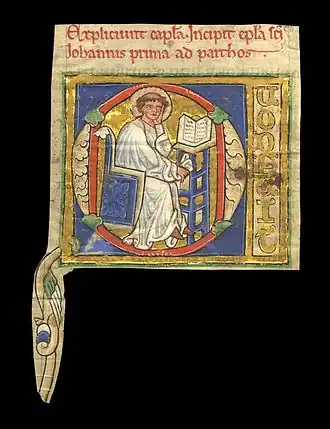 Expliciunt capła. Incipit epła sc̄i
Iohannis prima ad parthos.